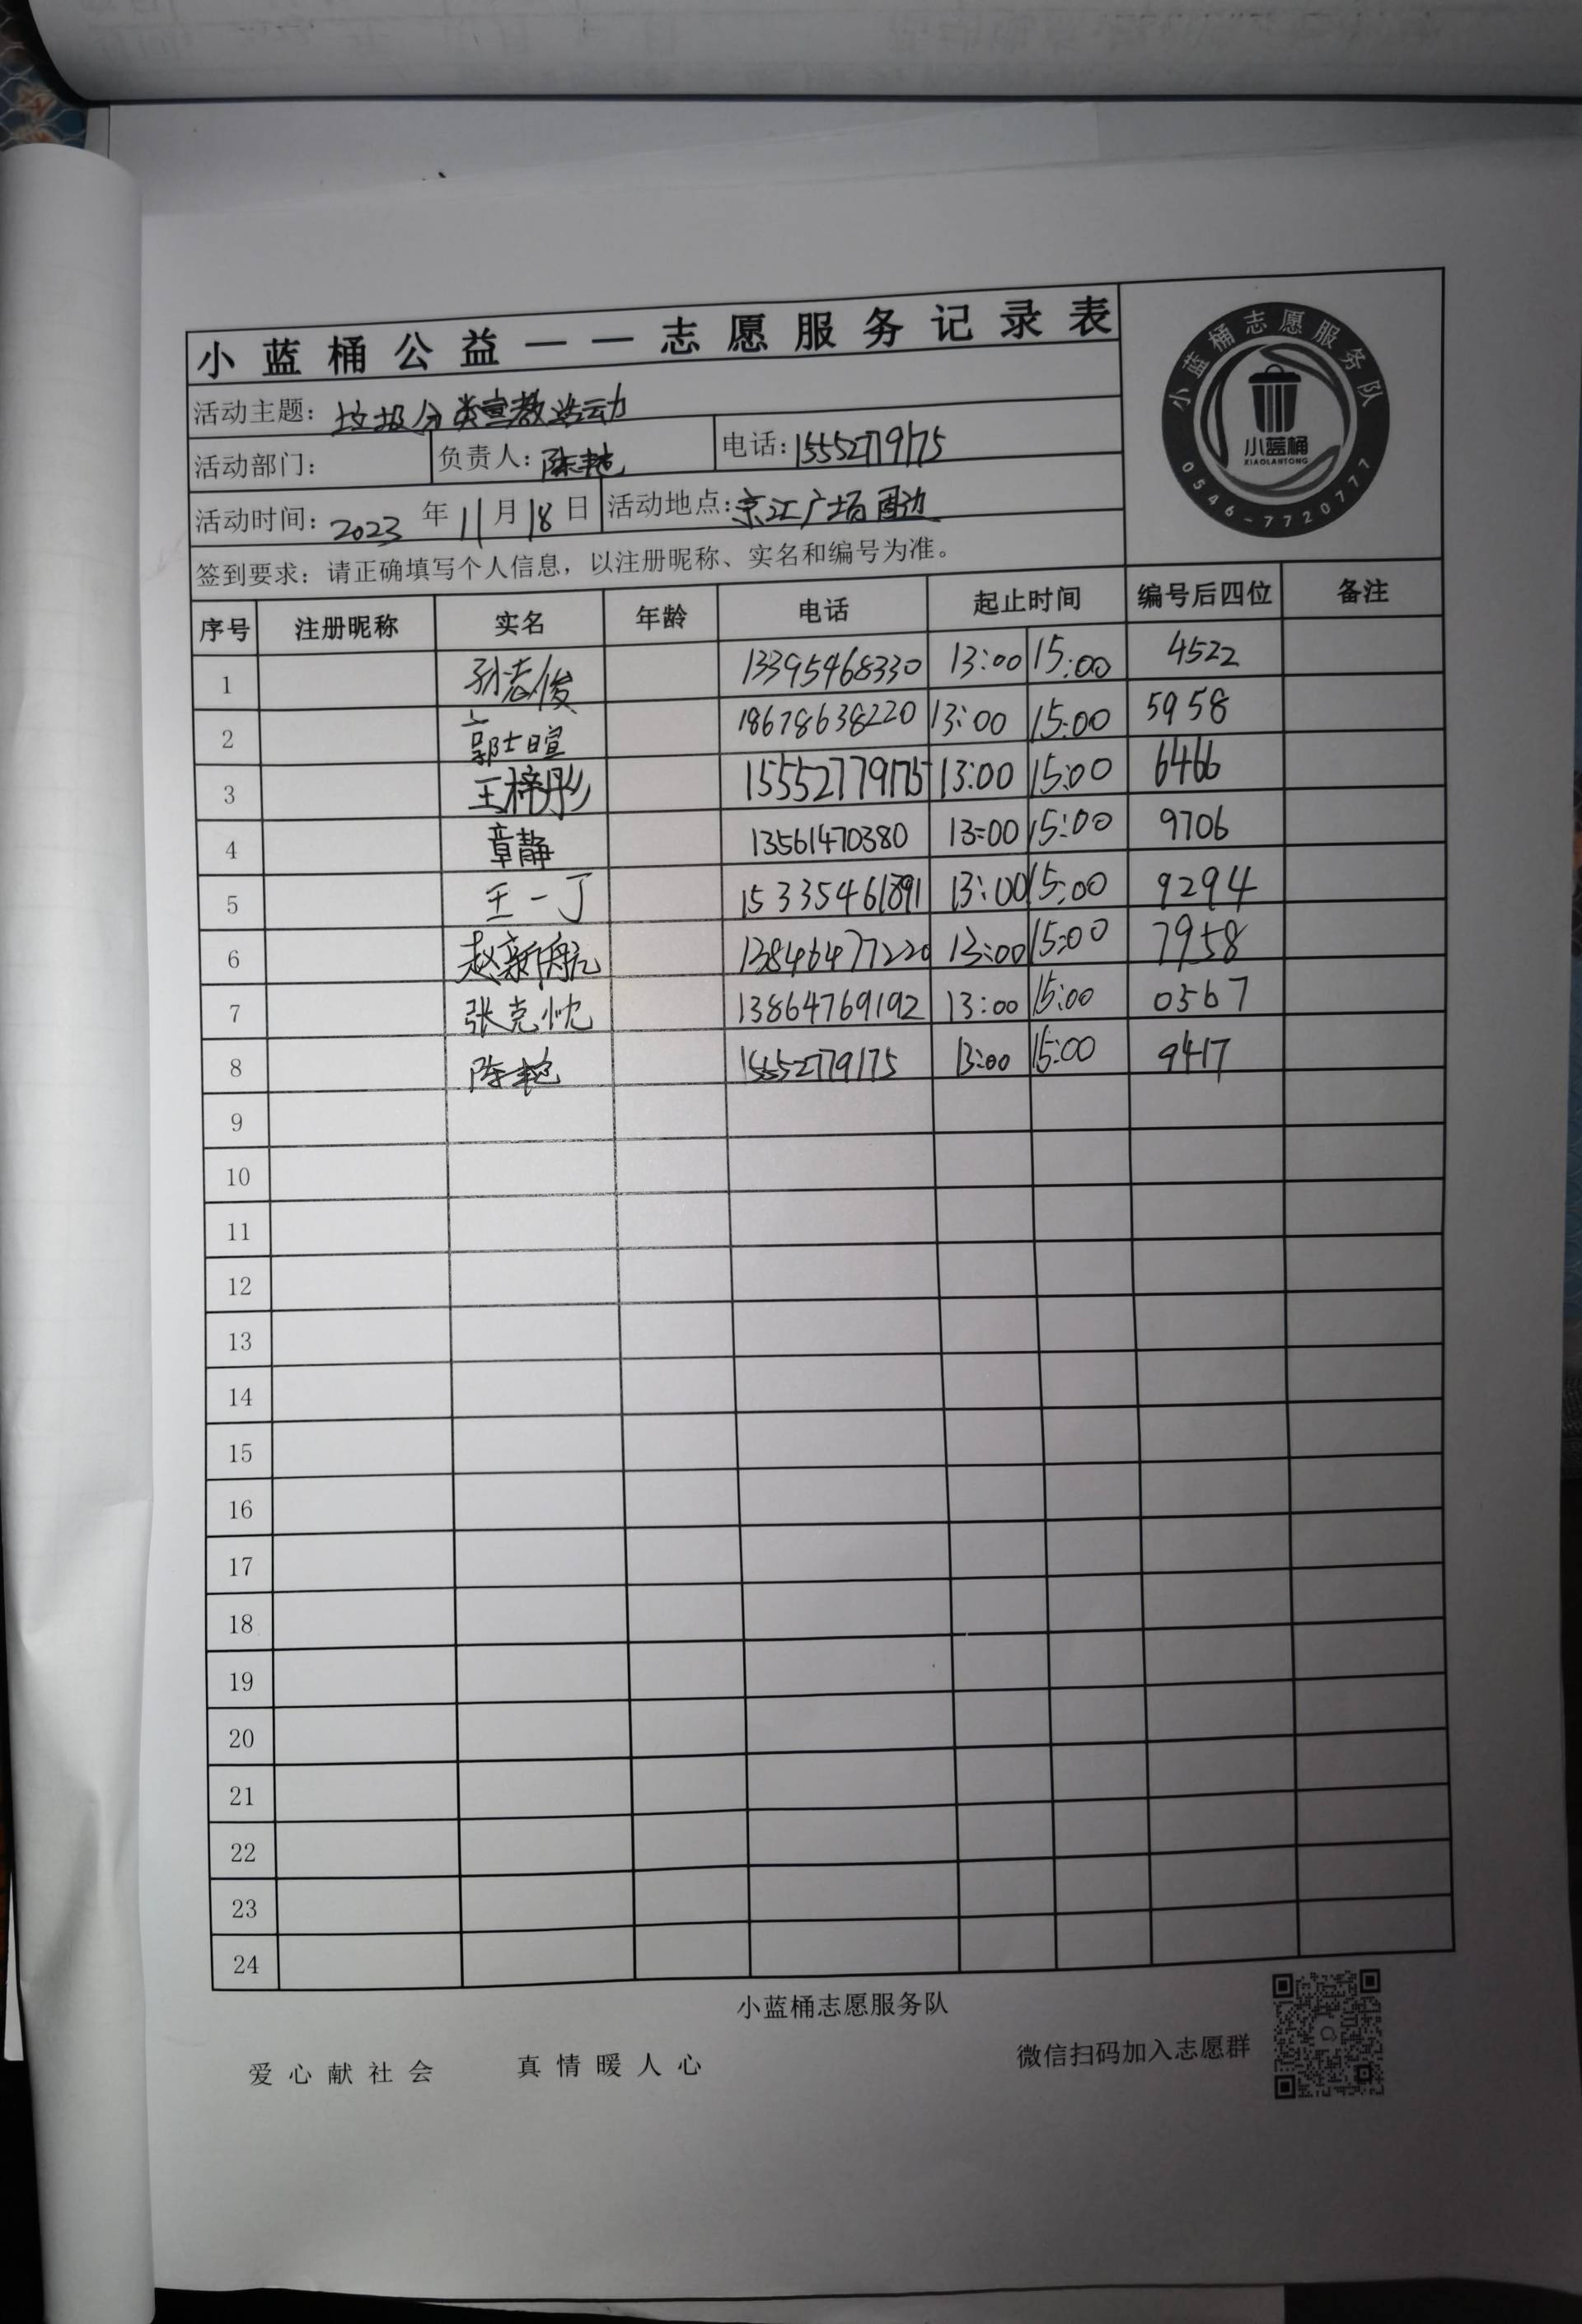 小蓝桶公益——志愿服务记录表
小蓝桶志愿服务队
小蓝桶
XIAOLANTONG
0546-7720777
活动主题：垃圾分类宣教活动
活动部门： 负责人：陈艳 电话：15552779175
活动时间：2023 年 11 月 18 日 活动地点：京江广场周边
签到要求：请正确填写个人信息，以注册昵称、实名和编号为准。
序号 注册昵称 实名 年龄 电话 起止时间 编号后四位 备注
1 孙志俊 13395468330 13:00 15:00 4522
2 郭士暄 18678638220 13:00 15:00 5958
3 王梓彤 15552779175 13:00 15:00 6466
4 章静 13561470380 13:00 15:00 9706
5 王一丁 15335461891 13:00 15:00 9294
6 赵新航 13846477220 13:00 15:00 7958
7 张克忱 13864769192 13:00 15:00 0567
8 陈艳 15552779175 13:00 15:00 9417
9
10
11
12
13
14
15
16
17
18
19
20
21
22
23
24
小蓝桶志愿服务队
爱心献社会 真情暖人心 微信扫码加入志愿群